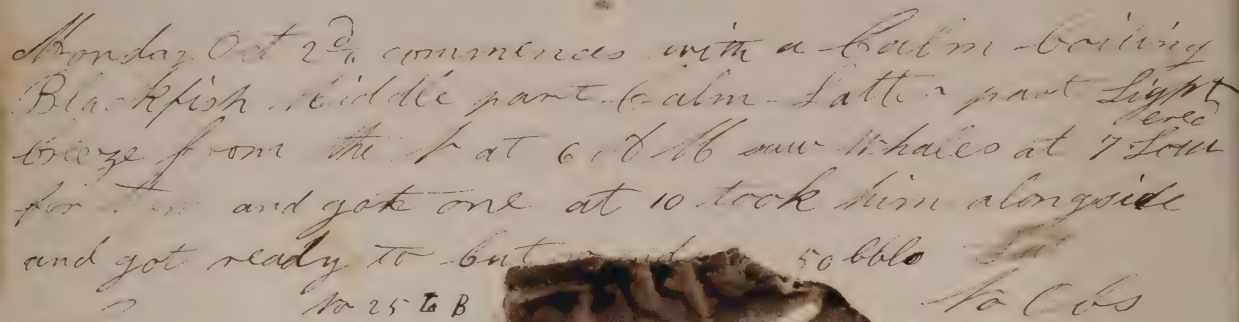 Monday Oct 2d, commences with a Calm boiling
Blackfish Middle part Calm Latter part Light
breeze from the N at 6 A M saw Whales at 7 Lowered
for them and got one at 10 took him alongside
and got ready to Cut 50 bbls
No 25 to B No Obs